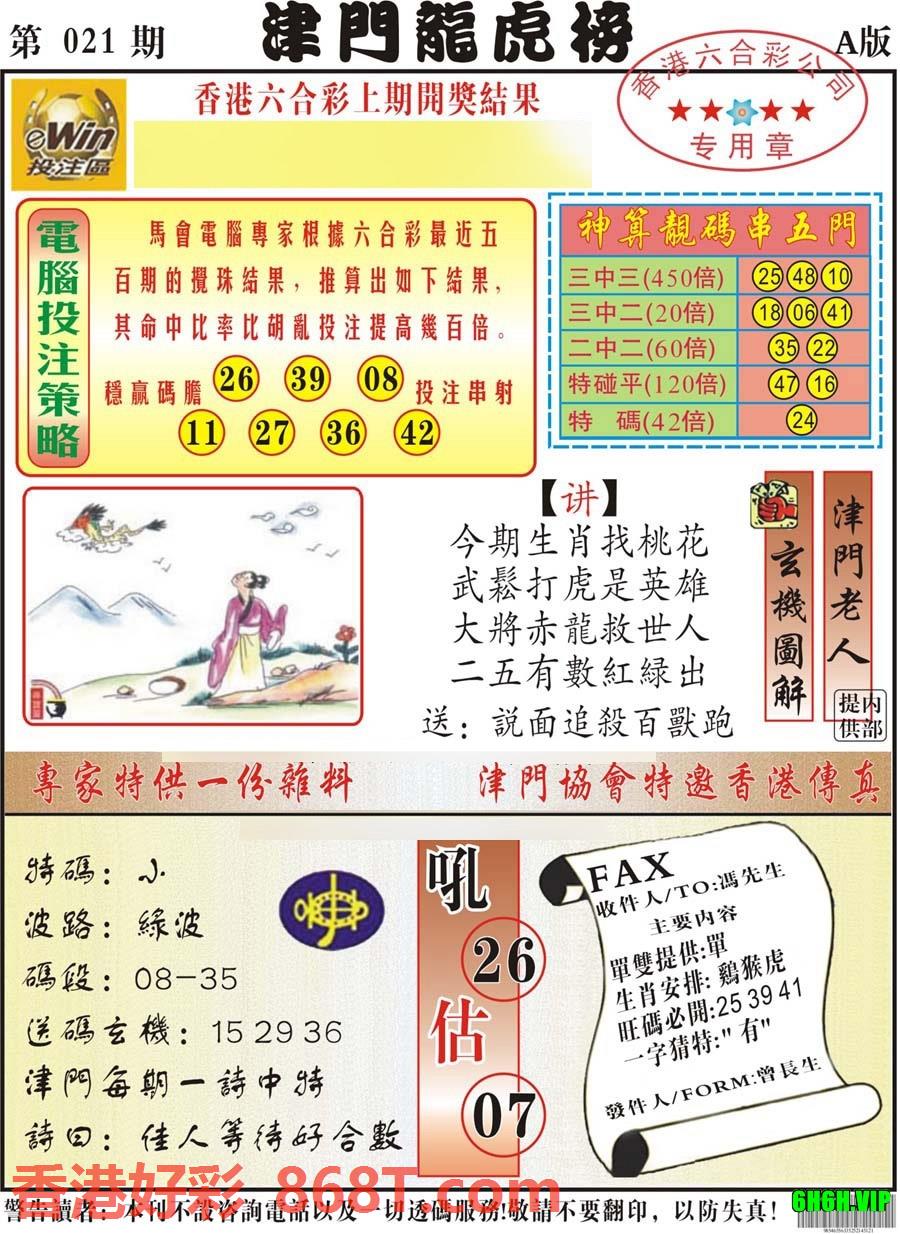 第 021 期
津門龍虎榜
A版
eWin
投注區
香港六合彩上期開獎結果
香港六合彩公司
★★★★
专用章
電腦投注策略
馬會電腦專家根據六合彩最近五
百期的攪珠結果，推算出如下結果，
其命中比率比胡亂投注提高幾百倍。
穩贏碼膽 26 39 08 投注串射
11 27 36 42
神算靚碼串五門
三中三(450倍) 25 48 10
三中二(20倍) 18 06 41
二中二(60倍) 35 22
特碰平(120倍) 47 16
特 碼(42倍) 24
【讲】
今期生肖找桃花
武鬆打虎是英雄
大將赤龍救世人
二五有數紅緑出
送：説面追殺百獸跑
玄機圖解
津門老人
内部提供
專家特供一份雜料
津門協會特邀香港傳真
特碼：小
波路：綠波
碼段：08-35
送碼玄機：15 29 36
津門每期一詩中特
詩曰：佳人等待好合數
吼
26
估
07
FAX
收件人/TO:馮先生
主要内容
單雙提供:單
生肖安排: 鷄猴虎
旺碼必開:25 39 41
一字猜特:" 有"
發件人/FORM:曾長生
香港好彩 868T.com
警告讀者：本刊不設咨詢電話以及一切透碼服務!敬請不要翻印，以防失真！
6H6H.VIP